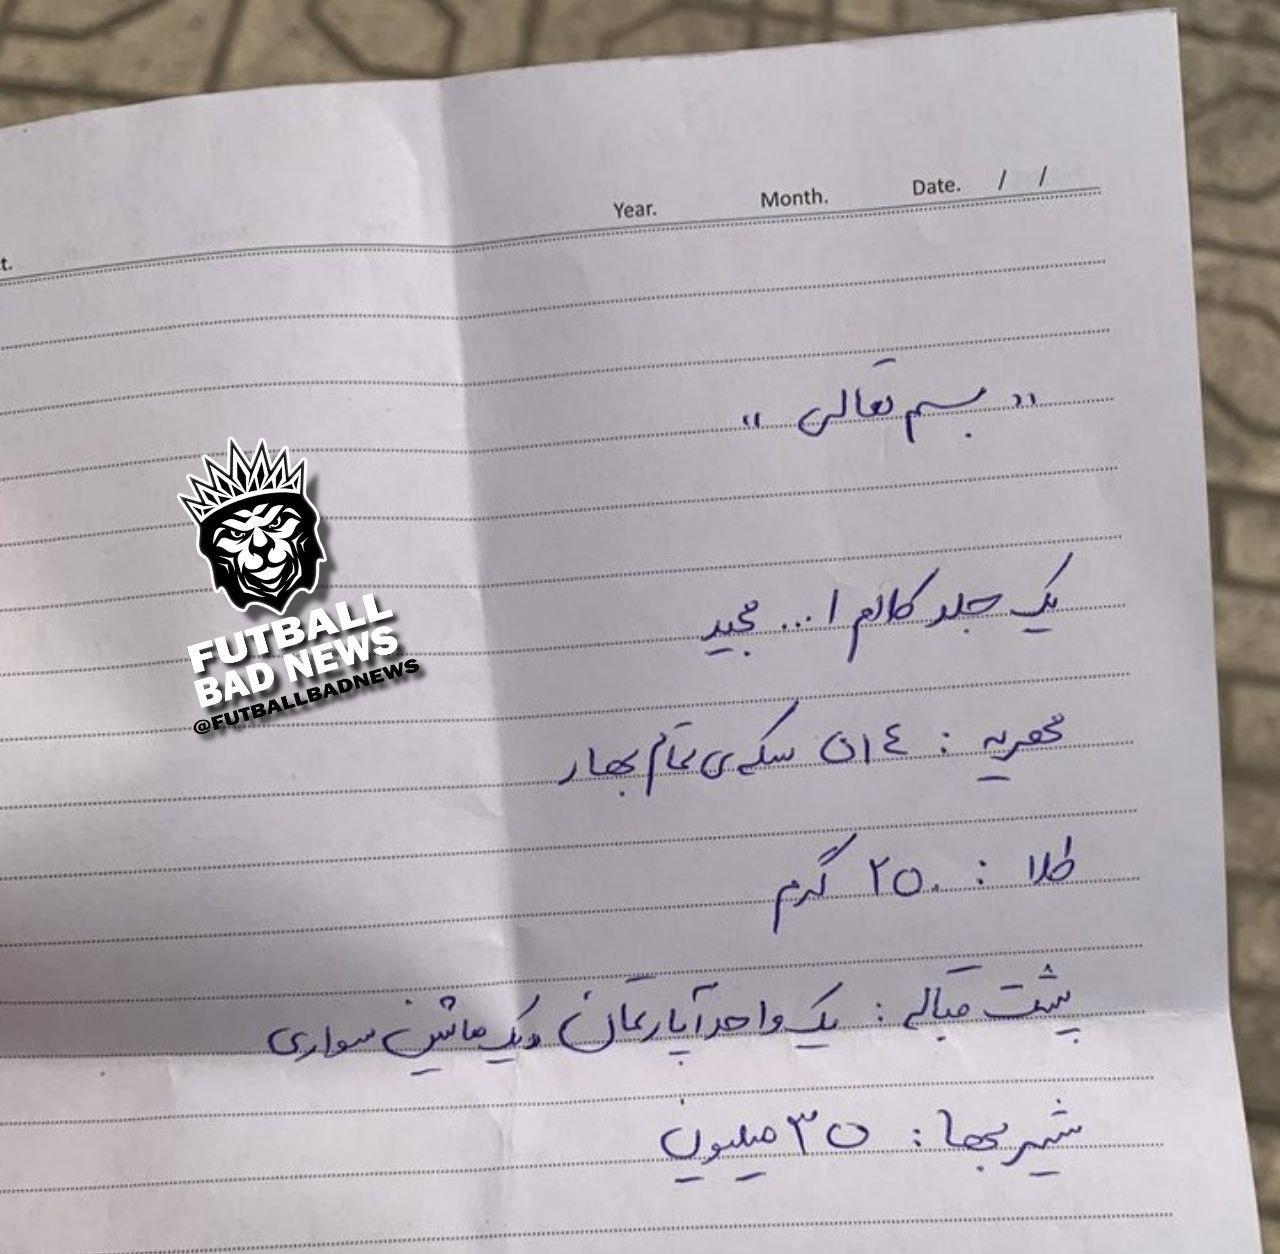 Year. Month. Date. / /
t.
« بسم تعالی »
یک جلد کلام ا... مجید
مهریه : ۵۱۴ سکه ی تمام بهار
طلا : ۲۵۰ گرم
پشت قباله : یک واحد آپارتمان و یک ماشین سواری
شیربها : ۳۵ میلیون
FUTBALL
BAD NEWS
@FUTBALLBADNEWS